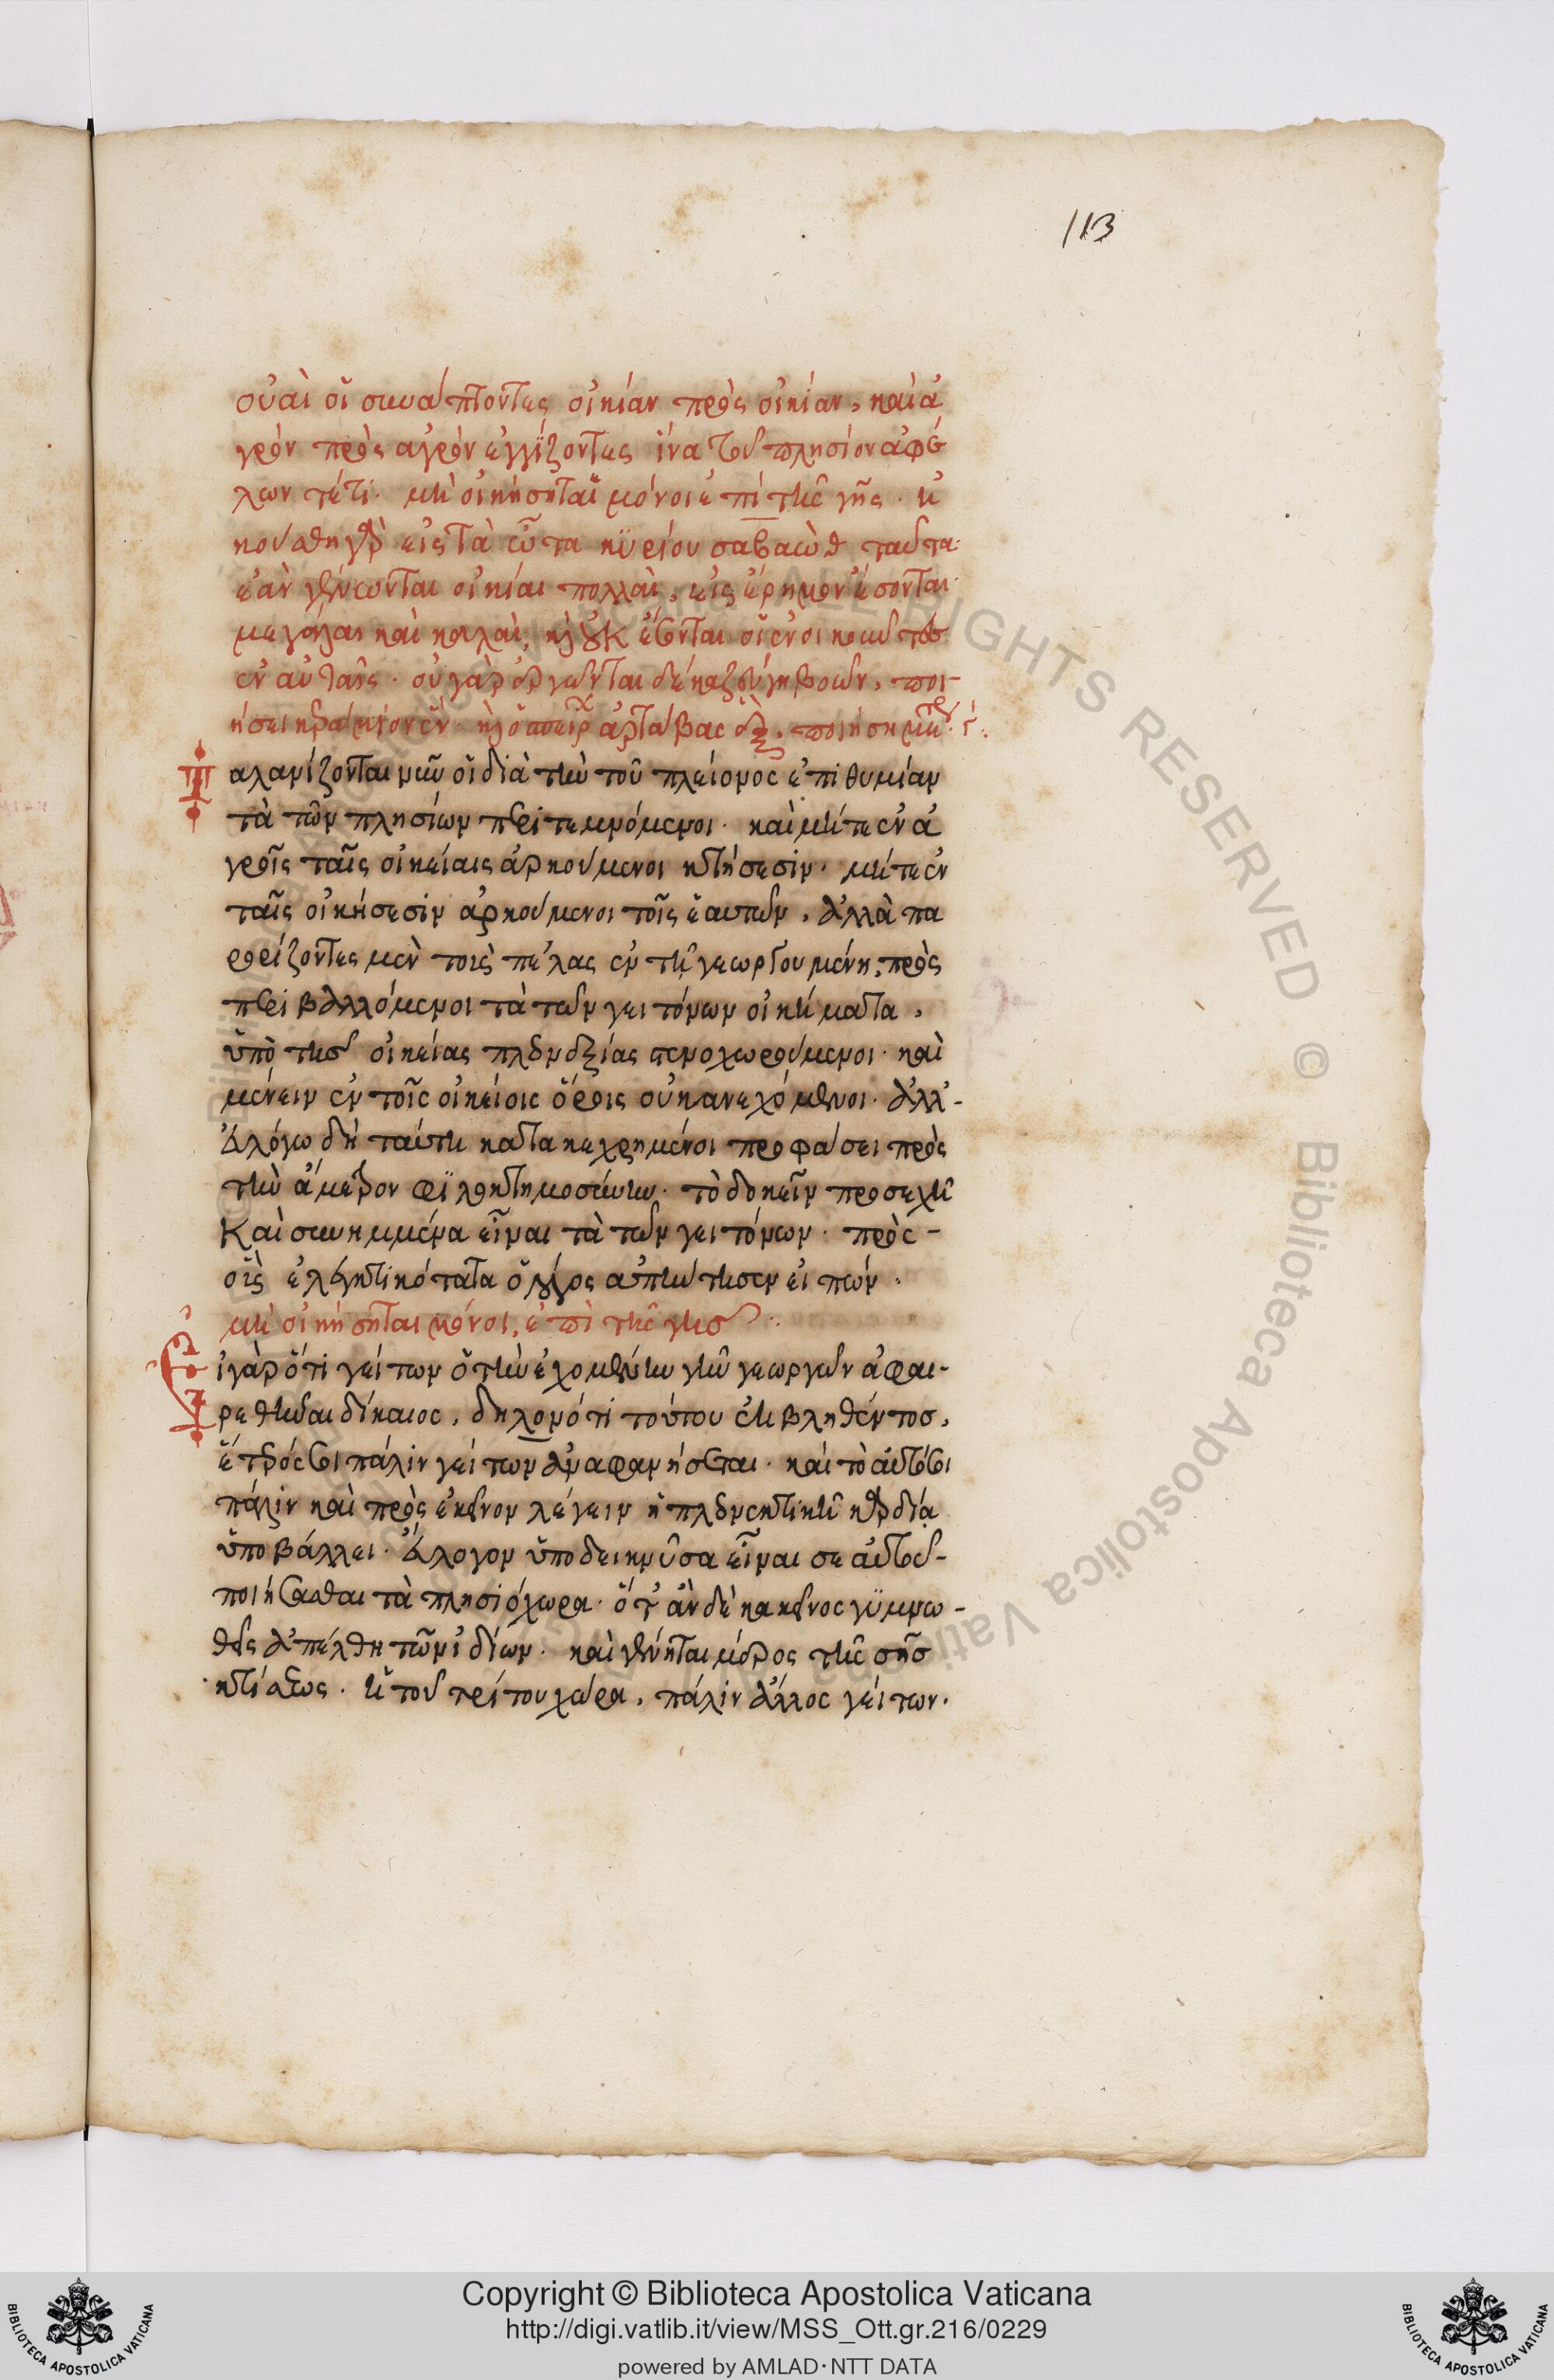 113
οὐαὶ οἱ συνάπτοντες οἰκίαν πρὸς οἰκίαν, καὶ ἀ
γρὸν πρὸς αγρὸν εγγίζοντες ἵνα τοῦ πλησίον ἀφέ
λων τέ τι. μὴ οἰκήσηται μόνοι ἐπὶ τῆς γῆς. ἠ
κούσθη γὰρ εἰς τὰ ὦτα κυρίου σαβαὼθ ταῦτα.
ἐὰν γένωνται οἰκίαι πολλαὶ, εἰς ἔρημον ἔσονται.
μεγάλαι καὶ καλαὶ, καὶ οὐκ ἔσονται οἱ ἐνοικοῦντες
ἐν αὐταῖς. οὐ γὰρ ἐργῶνται δέκα ζεύγη βοῶν, ποι-
ήσει κεράμιον ἓν. καὶ ὁ σπείρ ἀρτάβας ἓξ, ποιήση μετρ γ.
αλανίζονται μὲν οἱ διὰ τὴν τοῦ πλείονος ἐπιθυμίαν
τὰ τῶν πλησίων περιτεμνόμενοι. καὶ μήτε ἐν ἀ
γροῖς ταῖς οἰκείαις ἀρκούμενοι κτήσεσιν. μήτε ἐν
ταῖς οἰκήσεσιν ἀρκούμενοι τοῖς ἑαυτῶν, ἀλλὰ πα
ρορίζοντες μὲν τοὺς πέλας ἐν τῆ γεωργουμένη, πρὸς
περιβαλλόμενοι τὰ τῶν γειτόνων οἰκήματα,
ὑπὸ τῆς οἰκείας πλεονεξίας στενοχωρούμενοι. καὶ
μένειν ἐν τοῖς οἰκείοις ὅροις οὐκ ανεχόμενοι. ἀλλ'-
ἀλόγω δὴ ταύτη κατακεχρημένοι προφάσει πρὸς
τὴν ἄμετρον φιλοκτημοσύνην. τὸ δοκεῖν προσεχῆ
Καὶ συνημμένα εἶναι τὰ τῶν γειτόνων. πρὸς-
οὓς ἐλεγκτικότατα ὁ λόγος ἀπήντησεν εἰπών.
μὴ οἰκήσηται μόνοι, ἐπὶ τῆς γῆς
ἰ γὰρ ὅτι γείτων ὁ τὴν ἐχομένην γῆν γεωργῶν ἀφαι-
ρεθῆναι δίκαιος, δηλονότι τούτου ἐκβληθέντος,
ἕτερός σοι πάλιν γείτων ἀναφανήσεται. καὶ τὸ αὐτό σοι
πάλιν καὶ πρὸς ἐκεῖνον λέγειν ἡ πλεονεκτικὴ καρδία
ὑποβάλλει. ἄλογον ὑποδεικνῦσα εἶναι σεαυτοῦ-
ποιήσασθαι τὰ πλησιόχωρα. ὅτ' ἂν δὲ κακεῖνος γυμνω-
θεὶς ἀπέλθη τῶν ἰδίων. καὶ γένηται μέρος τῆς σῆς
κτήσεως. ἡ τοῦ τρίτου χώρα, πάλιν ἄλλος γείτων.
Copyright © Biblioteca Apostolica Vaticana
http://digi.vatlib.it/view/MSS_Ott.gr.216/0229
powered by AMLAD·NTT DATA
BIBLIOTECA APOSTOLICA VATICANA
BIBLIOTECA APOSTOLICA VATICANA
ALL RIGHTS RESERVED © Biblioteca Apostolica Vaticana